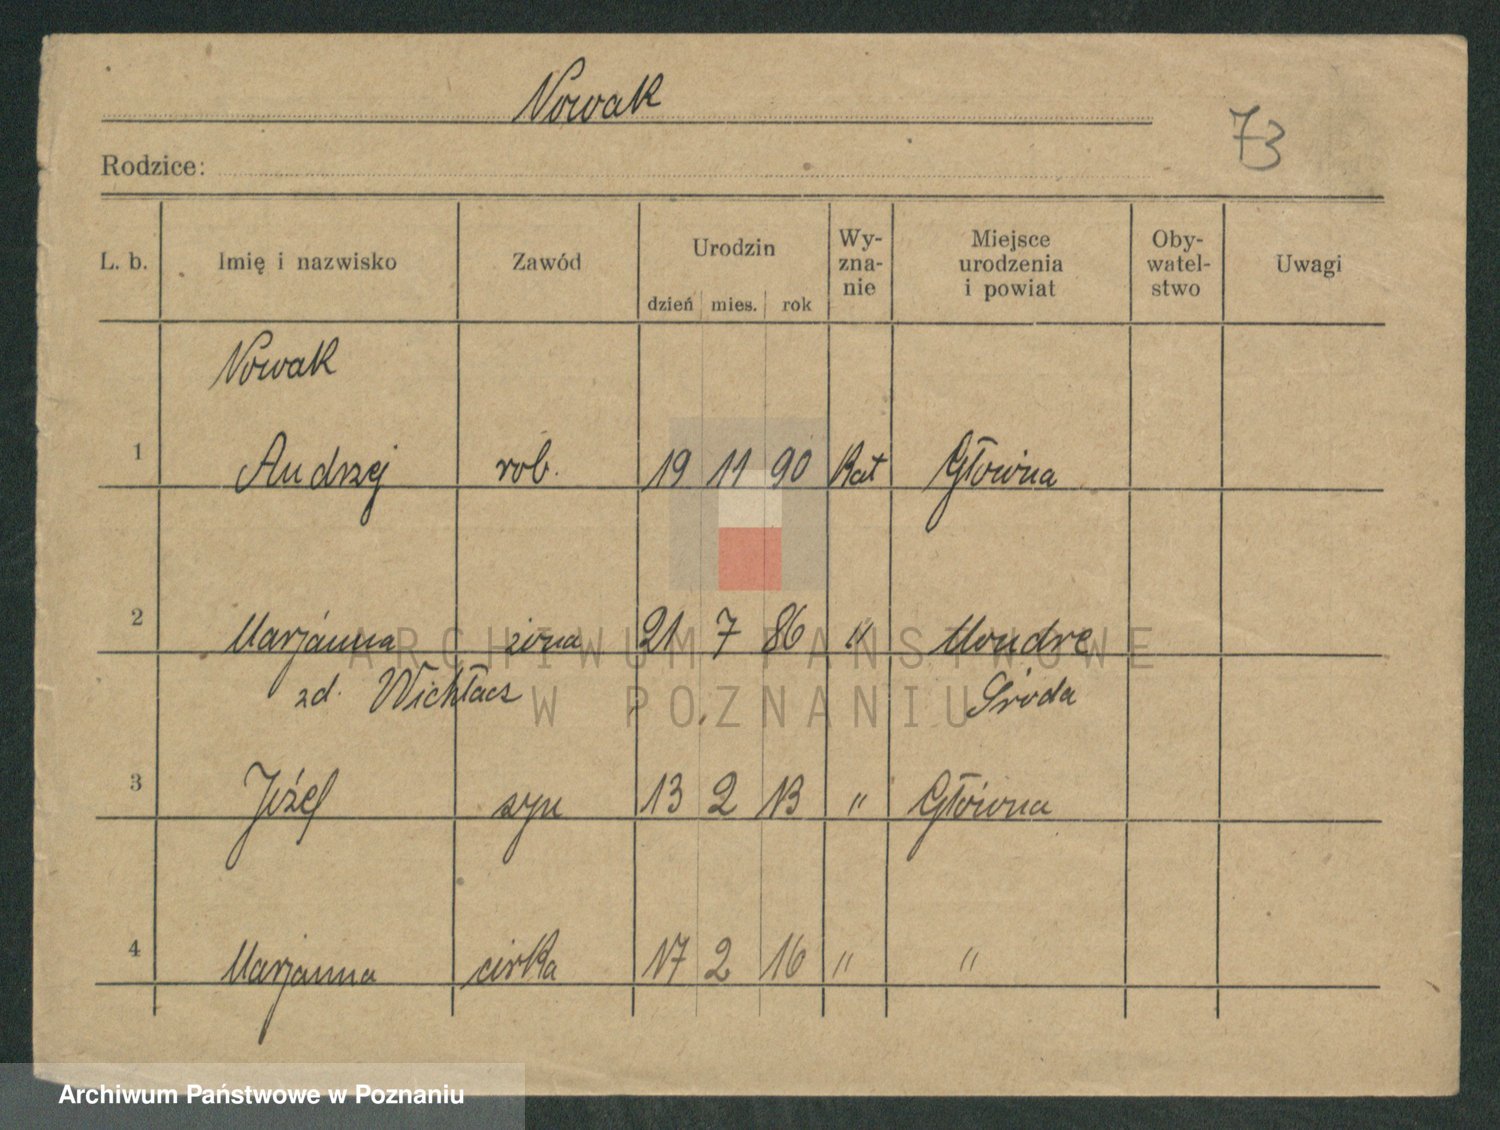 Nowak
73
Rodzice:
L. b. Imię i nazwisko Zawód Urodzin dzień mies. rok Wy-zna-nie Miejsce urodzenia i powiat Oby-watel-stwo Uwagi
Nowak
1 Andrzej rob. 19 11 90 Kat Główna
2 Marjanna żona 21 7 86 " Mondre
zd. Wichłacz Środa
3 Józef syn 13 2 13 " Główna
4 Marjanna cirka 17 2 16 " "
ARCHIWUM PAŃSTWOWE
W POZNANIU
Archiwum Państwowe w Poznaniu